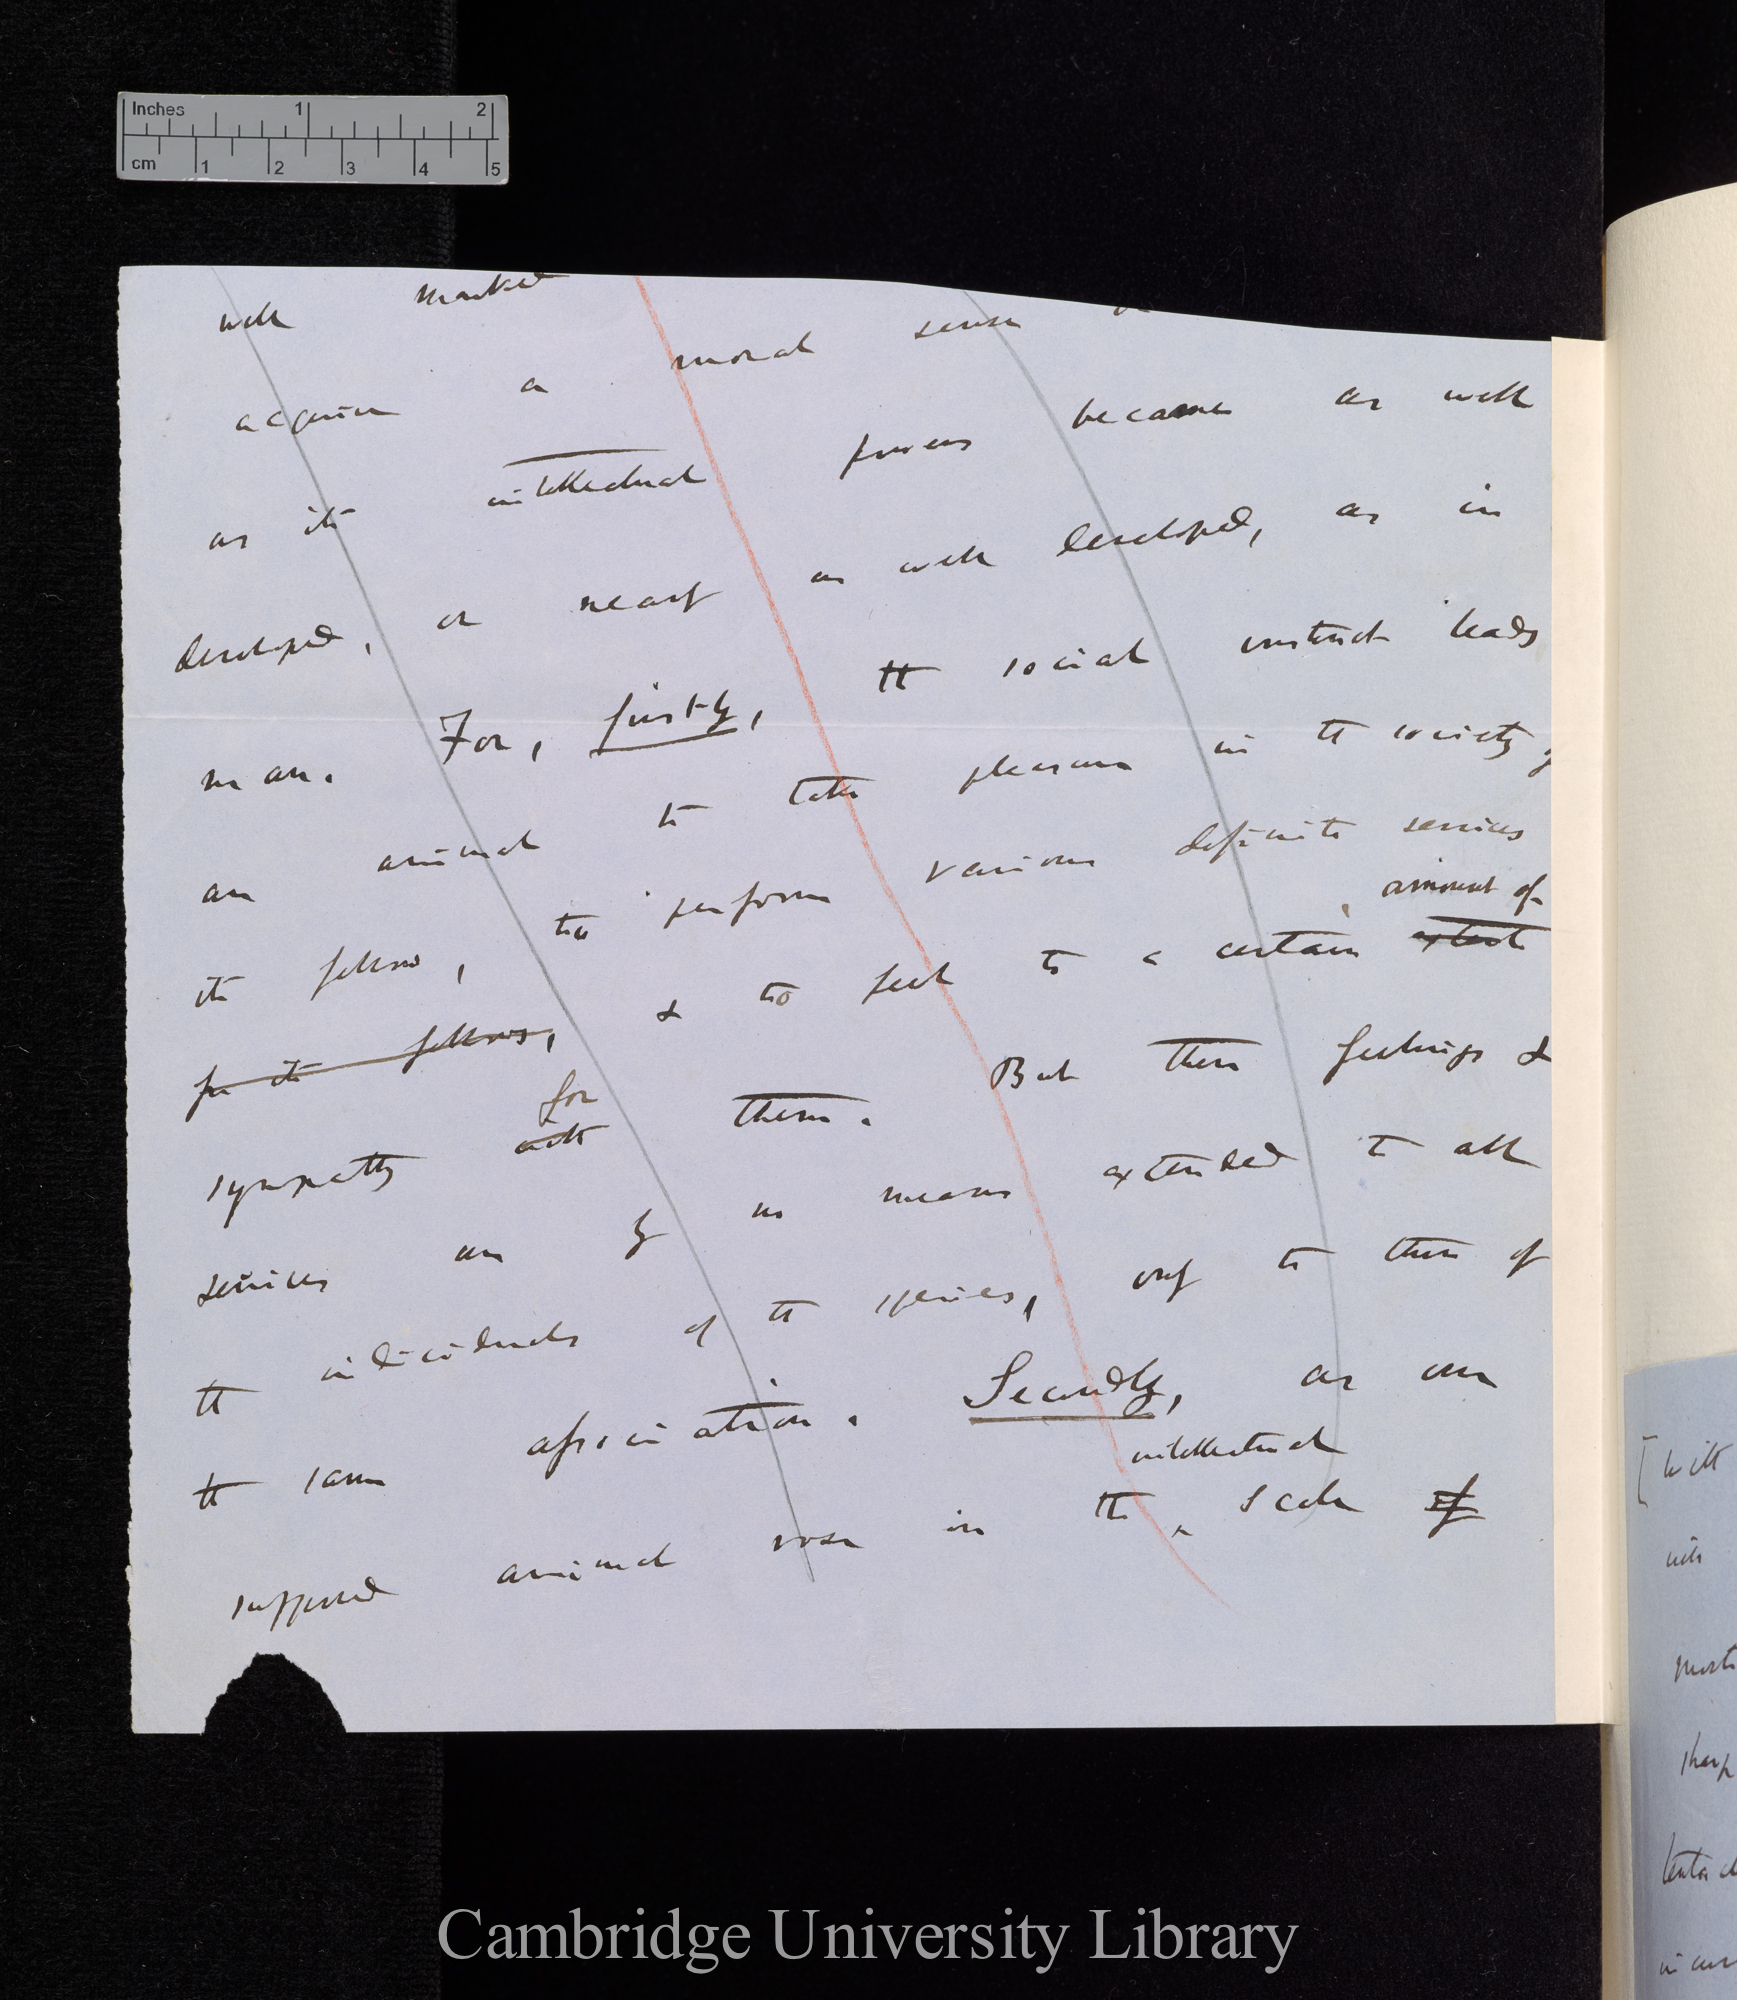 Inches 1 2
cm 1 2 3 4 5
well marked
acquire a moral sense
as its intellectual powers became as well
developed, or nearly as well developed, as in
man. For, firstly, the social instinct leads
an animal to take pleasure in the society of
its fellows, to perform various definite services
amount of
for its fellows, & to feel to a certain extent
for
sympathy with them. But these feelings &
services are by no means extended to all
the individuals of the species, only to those of
the same association. Secondly, as our
intellectual
supposed animal rose in the ^ scale of
[With
with
most
sharp
Cambridge University Library